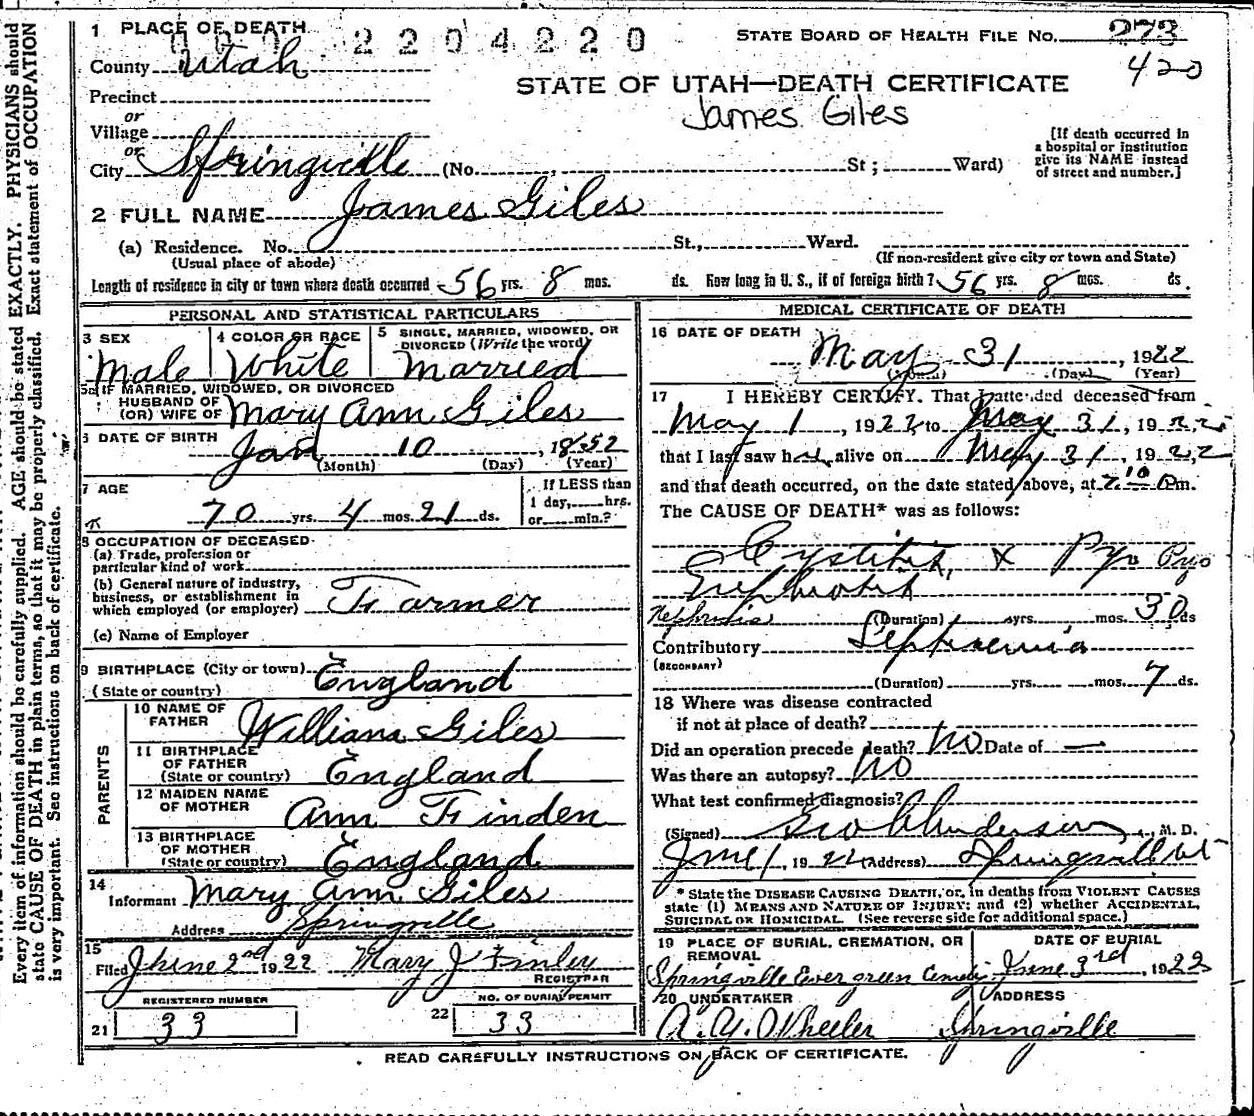 1 PLACE OF DEATH
2204220
STATE BOARD OF HEALTH FILE No. 273
420
County Utah
STATE OF UTAH—DEATH CERTIFICATE
James Giles
Precinct
or
Village
or
City Springville (No. St; Ward)
[If death occurred in
a hospital or institution
give its NAME instead
of street and number.]
2 FULL NAME James Giles
(a) Residence. No. St., Ward.
(Usual place of abode)
(If non-resident give city or town and State)
Length of residence in city or town where death occurred 56 yrs. 8 mos. ds. How long in U. S., if of foreign birth? 56 yrs. 8 mos. ds.
PERSONAL AND STATISTICAL PARTICULARS
3 SEX
Male
4 COLOR OR RACE
White
5 SINGLE, MARRIED, WIDOWED, OR
DIVORCED (Write the word)
Married
5a IF MARRIED, WIDOWED, OR DIVORCED
HUSBAND OF
(OR) WIFE OF Mary Ann Giles
6 DATE OF BIRTH
Jan 10, 1852
(Month) (Day) (Year)
7 AGE
70 yrs. 4 mos. 21 ds.
If LESS than
1 day, hrs.
or min.?
8 OCCUPATION OF DECEASED
(a) Trade, profession or
particular kind of work
(b) General nature of industry,
business, or establishment in
which employed (or employer) Farmer
(c) Name of Employer
9 BIRTHPLACE (City or town)
(State or country) England
PARENTS
10 NAME OF
FATHER William Giles
11 BIRTHPLACE
OF FATHER
(State or country) England
12 MAIDEN NAME
OF MOTHER Ann Finden
13 BIRTHPLACE
OF MOTHER
(State or country) England
14
Informant Mary Ann Giles
Address Springville
15
Filed June 2nd 1922 Mary J Finley
REGISTRAR
REGISTERED NUMBER
21 33
NO. OF BURIAL PERMIT
22 33
MEDICAL CERTIFICATE OF DEATH
16 DATE OF DEATH
May 31, 1922
(Month) (Day) (Year)
17 I HEREBY CERTIFY, That I attended deceased from
May 1, 1922, to May 31, 1922
that I last saw him alive on May 31, 1922
and that death occurred, on the date stated above, at 7:10 Pm.
The CAUSE OF DEATH* was as follows:
Cystitis, & Pyo Pyo
Nephrosis
Nephritis (Duration) yrs. mos. 30 ds
Contributory Septicemia
(SECONDARY)
(Duration) yrs. mos. 7 ds.
18 Where was disease contracted
if not at place of death?
Did an operation precede death? No Date of —
Was there an autopsy? No
What test confirmed diagnosis?
(Signed) Geo A Anderson, M. D.
June 1, 1922 (Address) Springville Ut
* State the DISEASE CAUSING DEATH, or, in deaths from VIOLENT CAUSES
state (1) MEANS AND NATURE OF INJURY; and (2) whether ACCIDENTAL,
SUICIDAL OR HOMICIDAL. (See reverse side for additional space.)
19 PLACE OF BURIAL, CREMATION, OR
REMOVAL
Springville Evergreen Cemetery
DATE OF BURIAL
June 3rd, 1922
20 UNDERTAKER
A. Y. Wheeler
ADDRESS
Springville
READ CAREFULLY INSTRUCTIONS ON BACK OF CERTIFICATE.
Every item of information should be carefully supplied. AGE should be stated EXACTLY. PHYSICIANS should
state CAUSE OF DEATH in plain terms, so that it may be properly classified. Exact statement of OCCUPATION
is very important. See instructions on back of certificate.